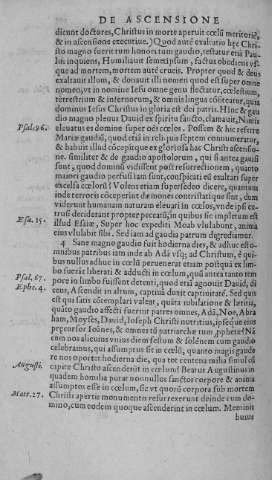 DE ASCENSIONE
dicunt doctores, Christus in morte aperuit cœlū meritoriè,
& in ascensione executiuè.) Quod autē exaltatio hęc Christo
magno fuerit tum honori tum gaudio, testatur etiā Pau-
lus inquiens, Humiliauit semetipsum, factus obediens vs-
que ad mortem, mortem autē crucis. Propter quod & deus
exaltauit illum, & donauit illi nomen quod est super omne
nomen, vt in nomine Iesu omne genu flectatur, cœlestium,
terrestrium & infernorum, & omnis lingua cōfiteatur, quia
dominus Iesus Christus in gloria est dei patris. Hinc & gau
dio magno plenus Dauid ex spiritu sancto, clamauit, Nimis
Psal. 96.
eleuatus es domine super oēs cœlos. Possem & hic referre
Mariæ gaudiū, quod etsi in reliquis septem connumeratur,
& habuit illud cōcepitque ex gloriosa hac Christi ascensio-
ne. similiter & de gaudio apostolorum, qui si antea gauisi
sunt, quod dominū vidissent post resurrectionem, quanto
maiori gaudio perfusi iam sunt, conspicati eū exaltari super
excelsa cœlorū? Volens etiam supersedeo dicere, quantam
inde terrorē cōceperint dæmones contristatique sint, dum
viderunt humanam naturam eleuari in cœlos, vnde ipsi ex-
trusi deciderant propter peccatū, in quibus sic impletum est
Esa. 15.
illud Esaiæ, Super hoc expediti Moab vlulabunt, anima
eius vlulabit sibi. Sed iam ad gaudia patrum digrediamur.
4 Sane magno gaudio fuit hodierna dies, & aduuc est o-
mnibus patribus tam inde ab Adā vsque ad Christum, è qui-
bus nullus adhuc in cœlū peruenerat etiam postquam ex lim
bo fuerāt liberati & adducti in cœlum, quā antea tanto tem
Psal. 67.
pore in limbo fuissēt detenti, quod etiā agnouit Dauid, di
Ephe. 4.
cens, Ascendit in altum, captiuā duxit captiuitatē. Sed quis
est qui satis cōtemplari valeat, quāta iubilatione & letitia,
quāto gaudio affecti fuerint patres omnes, Adā, Noe, Abra
ham, Moyses, Dauid, Ioseph Christi nutritius, ipse eius etiam
precursor Ioānes, & omnes tū patriarchæ tum prophetæ? Nā
cum nos alicuius vnius diem festum & solēnem cum gaudio
celebramus, qui assumptus sit in cœlū, quanto magis gaude
re nos oportet hodierna die, qua tot centena millia simul cū
cepire Christo ascenderit in cœlum? Beatus Augustinus in
August.
quadam homilia putat nonnullos sanctos corpore & anima
assumptos esse in cœlum, sic vt quorū corpora sub mortem
Matt. 27.
Christi apertis monumentis resurrexerunt deinde cum do-
mino, cum eodem quoque ascenderint in cœlum. Memini
huius